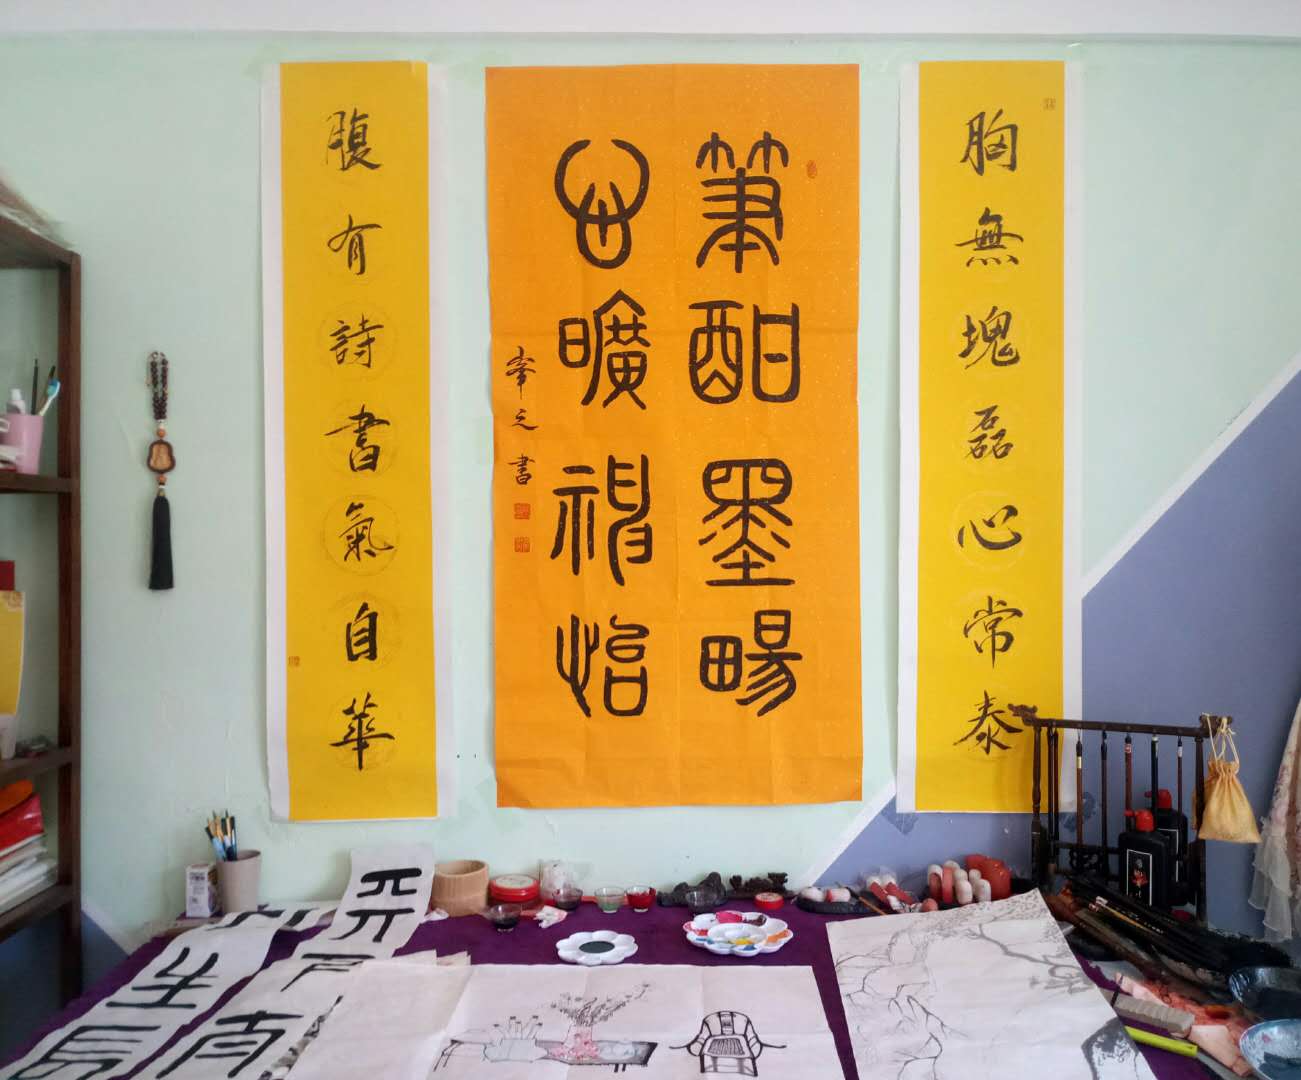 胸無塊磊心常泰
筆酣墨暢
心曠神怡
腹有詩書氣自華
生